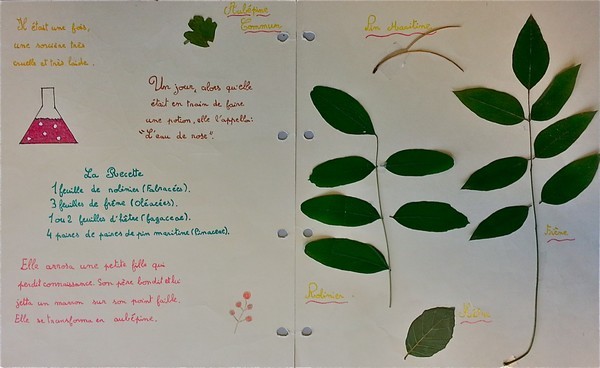 Il était une fois,
une sorcière très
cruelle et très laide.
Un jour, alors qu'elle
était en train de faire
une potion, elle l'appella:
"L'eau de rose".
La Recette
1 feuille de robinier (Fabracées).
3 feuilles de frêne (Oléacées).
1 ou 2 feuilles d'hêtre (fagaceae).
4 paires de paires de pin maritime (Pinaceae).
Elle arrosa une petite fille qui
perdit connaissance. Son père bondit et lui
jetta un marron sur son point faible.
Elle se transforma en aubépine.
Aubépine
Commun
Pin Maritime
Robinier
Hêtre
Frêne